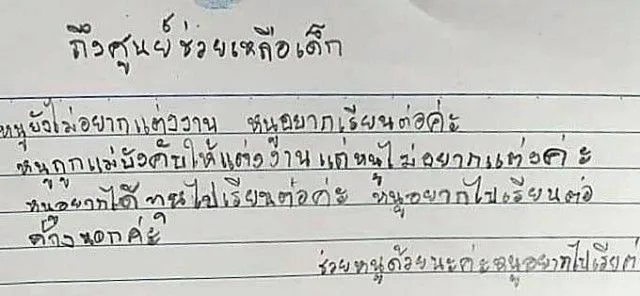 ถึงศูนย์ช่วยเหลือเด็ก
หนูยังไม่อยากแต่งงาน หนูอยากเรียนต่อค่ะ
หนูถูกแม่บังคับให้แต่งงานแต่หนูไม่อยากแต่งค่ะ
หนูอยากได้ทุนไปเรียนต่อค่ะ หนูอยากไปเรียนต่อ
ข้างนอกค่ะ
ช่วยหนูด้วยนะค่ะหนูอยากไปเรียน